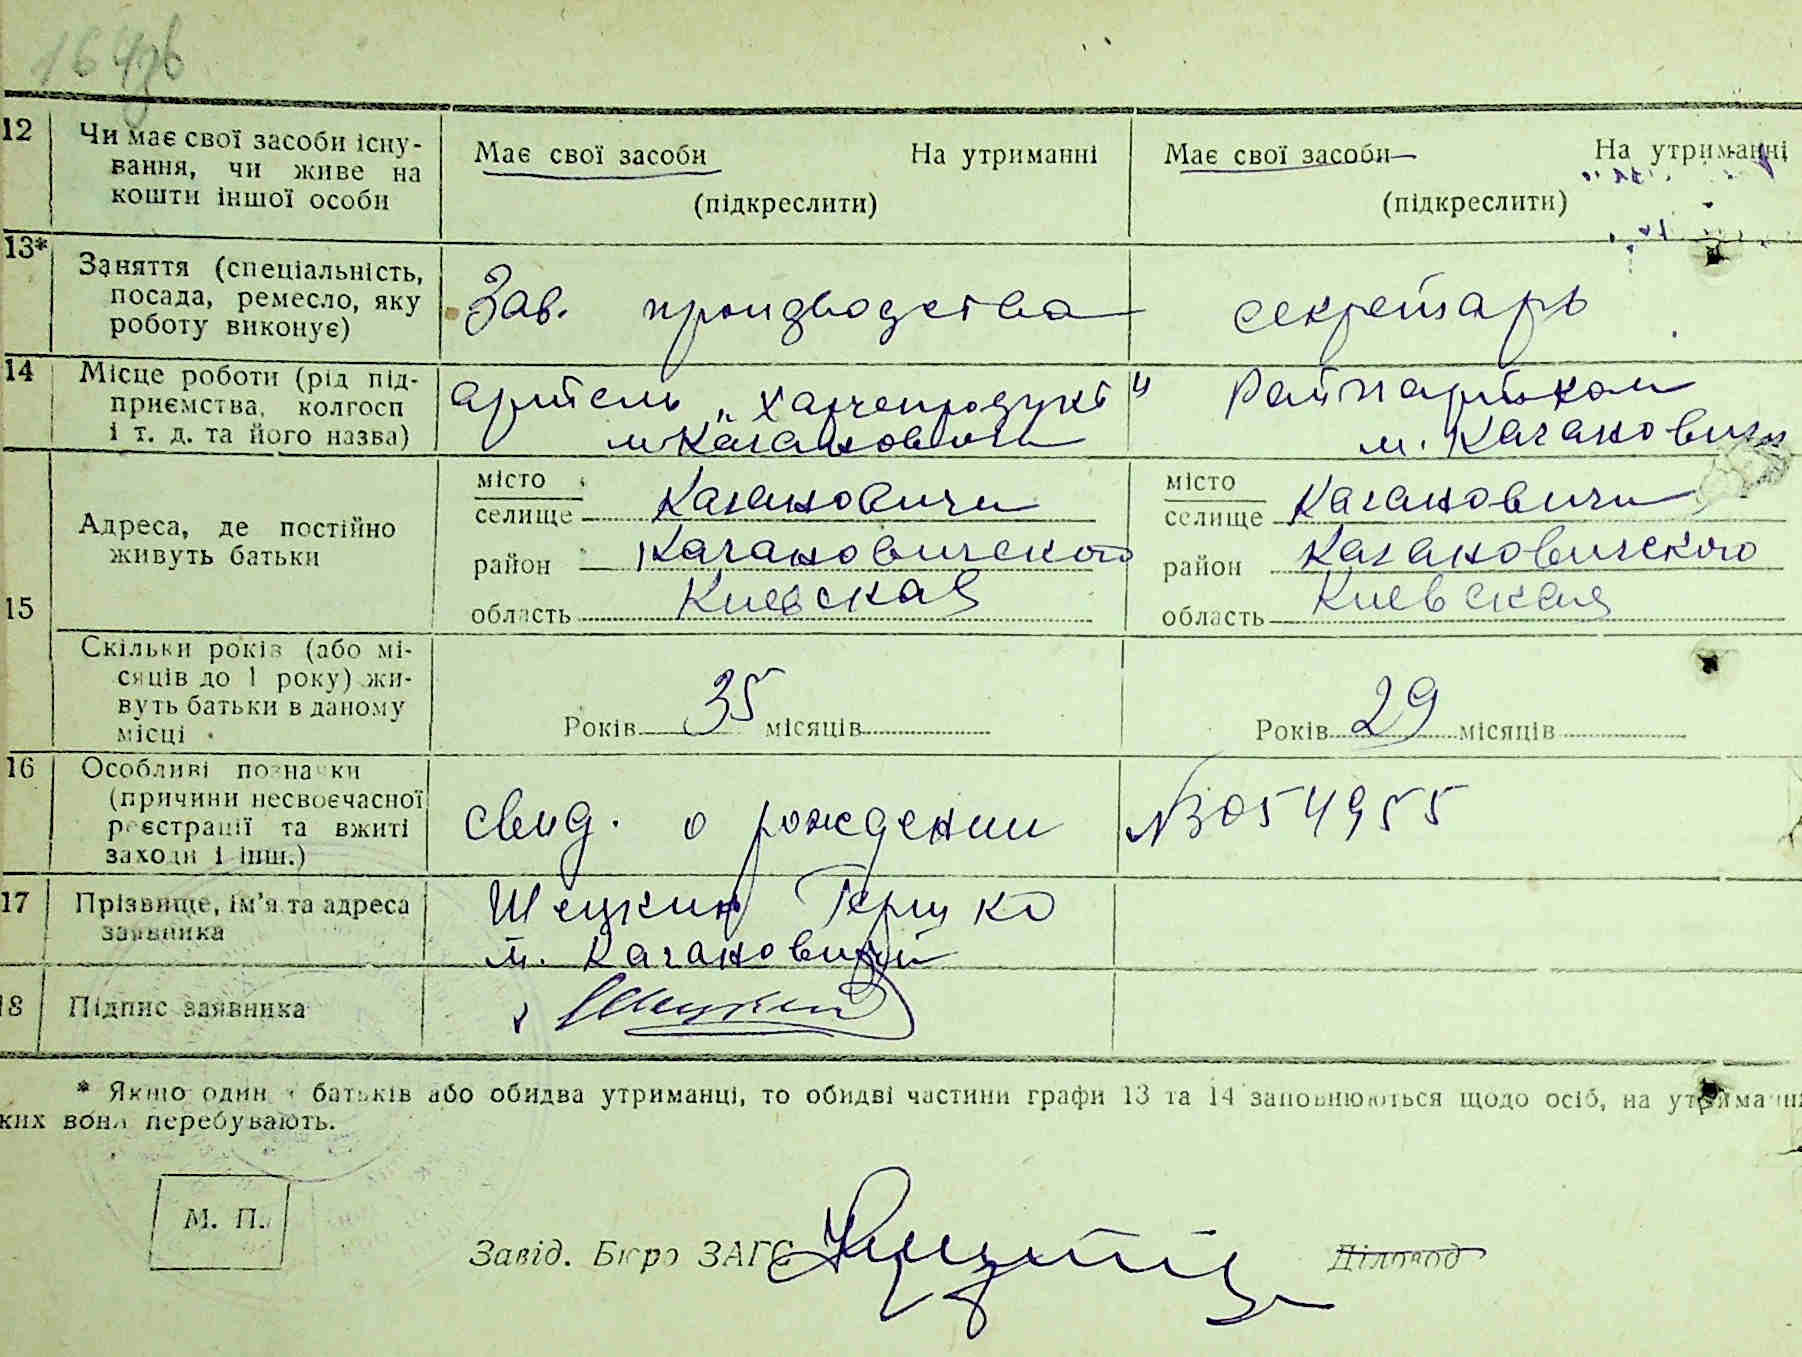 12 Чи має свої засоби існу-
вання, чи живе на
кошти іншої особи
Має свої засоби На утриманні
(підкреслити)
Має свої засоби На утриманні
(підкреслити)
13* Заняття (спеціальність,
посада, ремесло, яку
роботу виконує)
Зав. производства
секретарь
14 Місце роботи (рід під-
приємства, колгосп
і т. д. та його назва)
артель „Харчепродукт"
м Каганович
Райпартком
м. Каганович
15 Адреса, де постійно
живуть батьки
місто
селище Кагановичи
район Кагановичского
область Киевская
місто
селище Кагановичи
район Кагановичского
область Киевская
Скільки років (або мі-
сяців до 1 року) жи-
вуть батьки в даному
місці
Років 35 місяців
Років 29 місяців
16 Особливі позначки
(причини несвоєчасної
реєстрації та вжиті
заходи і інш.)
свид. о рождении №054955
17 Прізвище, ім'я та адреса
заявника
Шецкин Гершко
м. Каганович
18 Підпис заявника
* Якщо один з батьків або обидва утриманці, то обидві частини графи 13 та 14 заповнюються щодо осіб, на утриманні
ких вони перебувають.
М. П.
Завід. Бюро ЗАГС Діловод